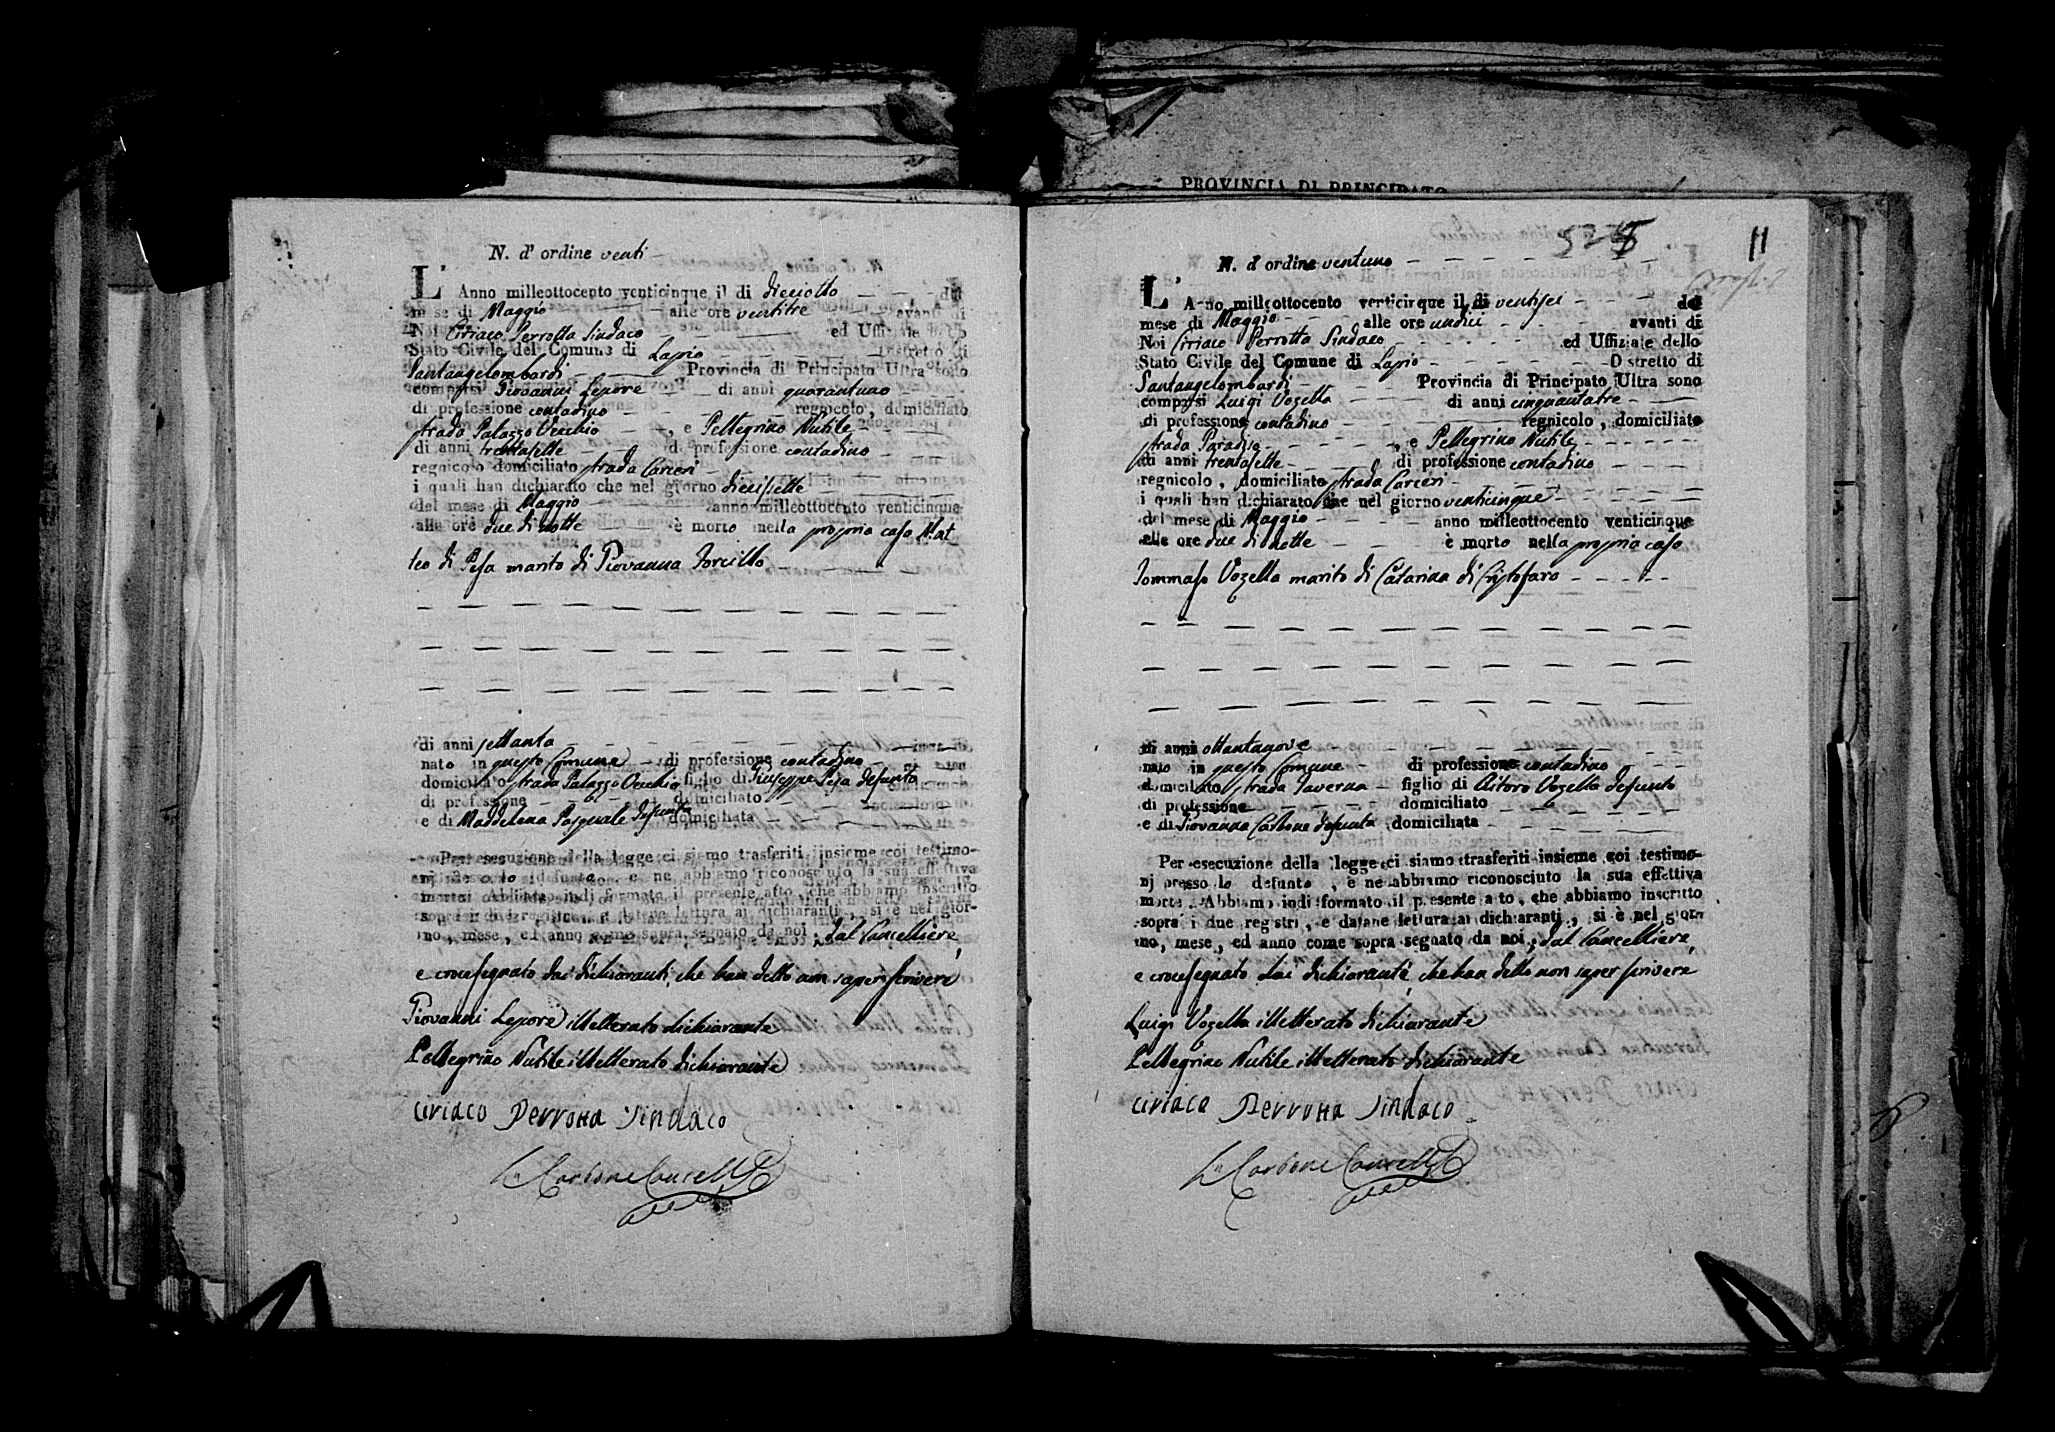 PROVINCIA DI PRINCIPATO
N. d' ordine venti
L' Anno milleottocento venticinque il dì dieciotto del
mese di Maggio alle ore ventitre avanti di
Noi Ciriaco Perrotta Sindaco ed Uffiziale dello
Stato Civile del Comune di Lapio Distretto di
Santangelombardi Provincia di Principato Ultra sono
comparsi Giovanni Lepore di anni quarantuno
di professione contadino regnicolo, domiciliato
strada Palazzo Vecchio, e Pellegrino Nutile
di anni trentasette di professione contadino
regnicolo domiciliato strada Carceri
i quali han dichiarato che nel giorno diecisette
del mese di Maggio anno milleottocento venticinque
alle ore due di notte è morto nella propria casa Mat
teo di Pesa marito di Giovanna Forcillo
di anni settanta
nato in questo Comune di professione contadino
domiciliato strada Palazzo Vecchio figlio di Giuseppe Pesa defunto
di professione domiciliato
e di Maddelena Pasquale defunta domiciliata
Per esecuzione della legge ci siamo trasferiti insieme coi testimo-
nj presso lo defunto, e ne abbiamo riconosciuto la sua effettiva
morte. Abbiamo indi formato il presente atto, che abbiamo inscritto
sopra i due registri, e datane lettura ai dichiaranti, si è nel gior-
no, mese, ed anno come sopra segnato da noi, dal Cancelliere,
e crocesegnato dai dichiaranti, che han detto non saper scrivere
Giovanni Lepore illetterato dichiarante
Pellegrino Nutile illetterato dichiarante
Ciriaco Perrotta Sindaco
Carbone Cancell
11
N. d' ordine ventuno
L' Anno milleottocento venticinque il dì ventisei del
mese di Maggio alle ore undici avanti di
Noi Ciriaco Perrotta Sindaco ed Uffiziale dello
Stato Civile del Comune di Lapio Distretto di
Santangelombardi Provincia di Principato Ultra sono
comparsi Luigi Vozella di anni cinquantatre
di professione contadino regnicolo, domiciliato
strada Paradiso, e Pellegrino Nutile
di anni trentasette di professione contadino
regnicolo, domiciliato strada Carceri
i quali han dichiarato che nel giorno venticinque
del mese di Maggio anno milleottocento venticinque
alle ore due di notte è morto nella propria casa
Tommaso Vozella marito di Catarina di Cristofaro
di anni ottantanove
nato in questo Comune di professione contadino
domiciliato strada Taverna figlio di Astoro Vozella defunto
di professione domiciliato
e di Giovanna Carbone defunta domiciliata
Per esecuzione della legge ci siamo trasferiti insieme coi testimo-
nj presso lo defunto, e ne abbiamo riconosciuto la sua effettiva
morte. Abbiamo indi formato il presente atto, che abbiamo inscritto
sopra i due registri, e datane lettura ai dichiaranti, si è nel gior-
no, mese, ed anno come sopra segnato da noi, dal Cancelliere,
e crocesegnato dai dichiaranti, che han detto non saper scrivere
Luigi Vozella illetterato dichiarante
Pellegrino Nutile illetterato dichiarante
Ciriaco Perrotta Sindaco
Carbone Cancell